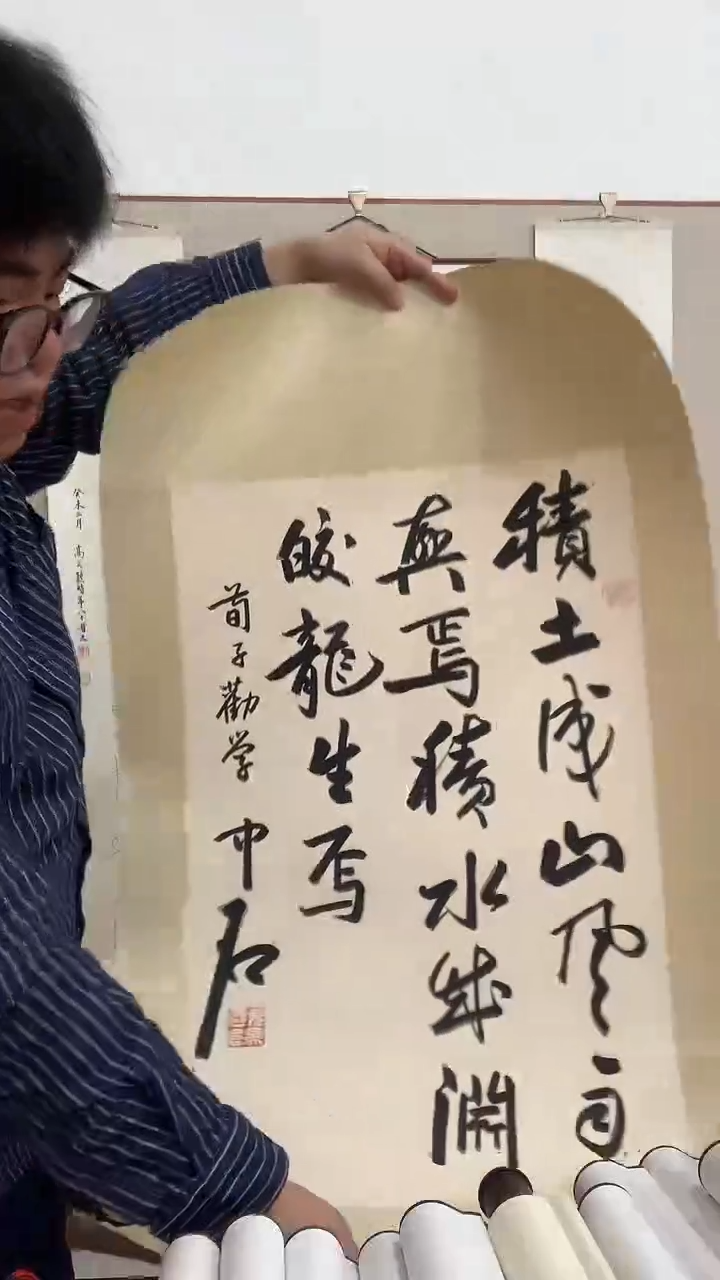 積土成山風雨
興焉積水成淵
蛟龍生焉
荀子勸学 中石
癸未二月